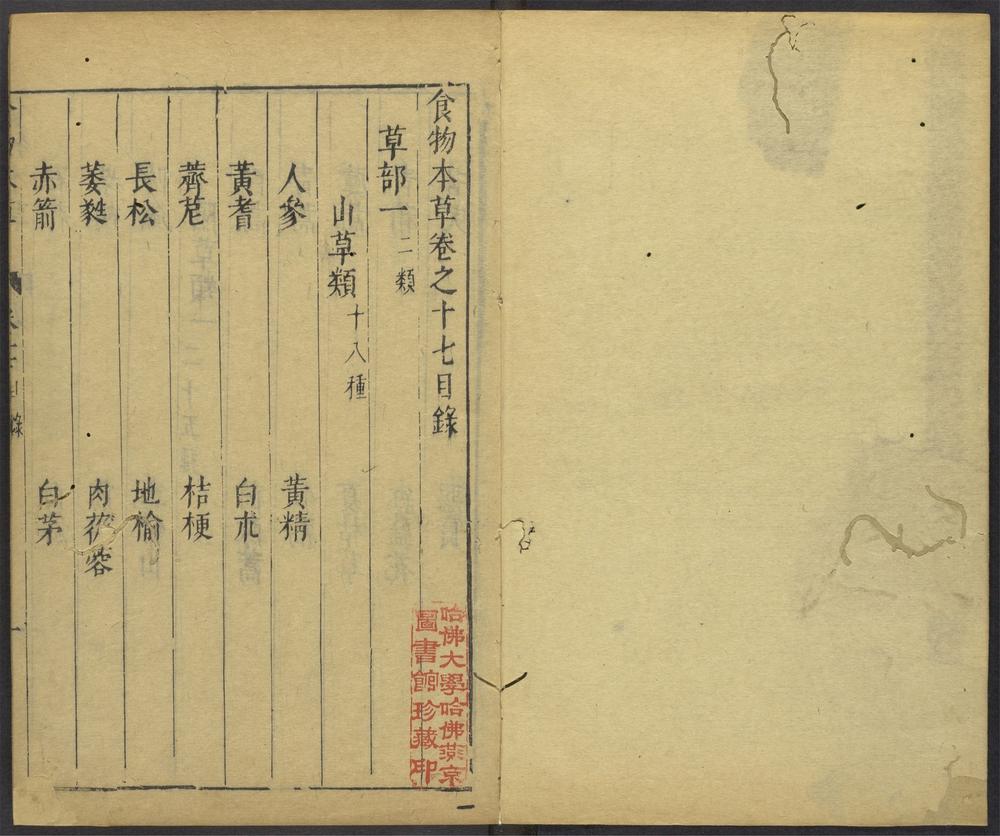 食物本草卷之十七目錄
草部一 二類
山草類 十八種
人參 黃精
黃耆 白朮
薺苨 桔梗
長松 地榆
萎蕤 肉蓯蓉
赤箭 白茅
哈佛大學哈佛燕京
圖書館珍藏印